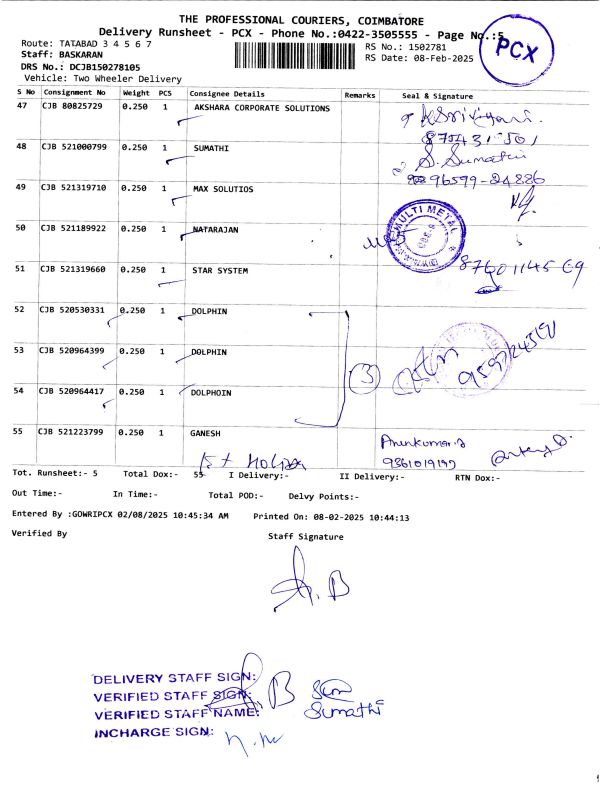 THE PROFESSIONAL COURIERS, COIMBATORE
Delivery Runsheet - PCX - Phone No.:0422-3505555 - Page No.:5
PCX
Route: TATABAD 3 4 5 6 7
RS No.: 1502781
Staff: BASKARAN
RS Date: 08-Feb-2025
DRS No.: DCJB150278105
Vehicle: Two Wheeler Delivery
S No Consignment No Weight PCS Consignee Details Remarks Seal & Signature
47 CJB 80825729 0.250 1 AKSHARA CORPORATE SOLUTIONS
48 CJB 521000799 0.250 1 SUMATHI S. Sumathi
96599-24886
49 CJB 521319710 0.250 1 MAX SOLUTIOS
MULTI METAL
50 CJB 521189922 0.250 1 NATARAJAN
51 CJB 521319660 0.250 1 STAR SYSTEM
52 CJB 520530331 0.250 1 DOLPHIN
53 CJB 520964399 0.250 1 DOLPHIN
3
54 CJB 520964417 0.250 1 DOLPHOIN
55 CJB 521223799 0.250 1 GANESH
Tot. Runsheet:- 5 Total Dox:- 55 I Delivery:- II Delivery:- RTN Dox:-
Out Time:- In Time:- Total POD:- Delvy Points:-
Entered By :GOWRIPCX 02/08/2025 10:45:34 AM Printed On: 08-02-2025 10:44:13
Verified By Staff Signature
DELIVERY STAFF SIGN:
VERIFIED STAFF SIGN:
VERIFIED STAFF NAME: Sumathi
INCHARGE SIGN: